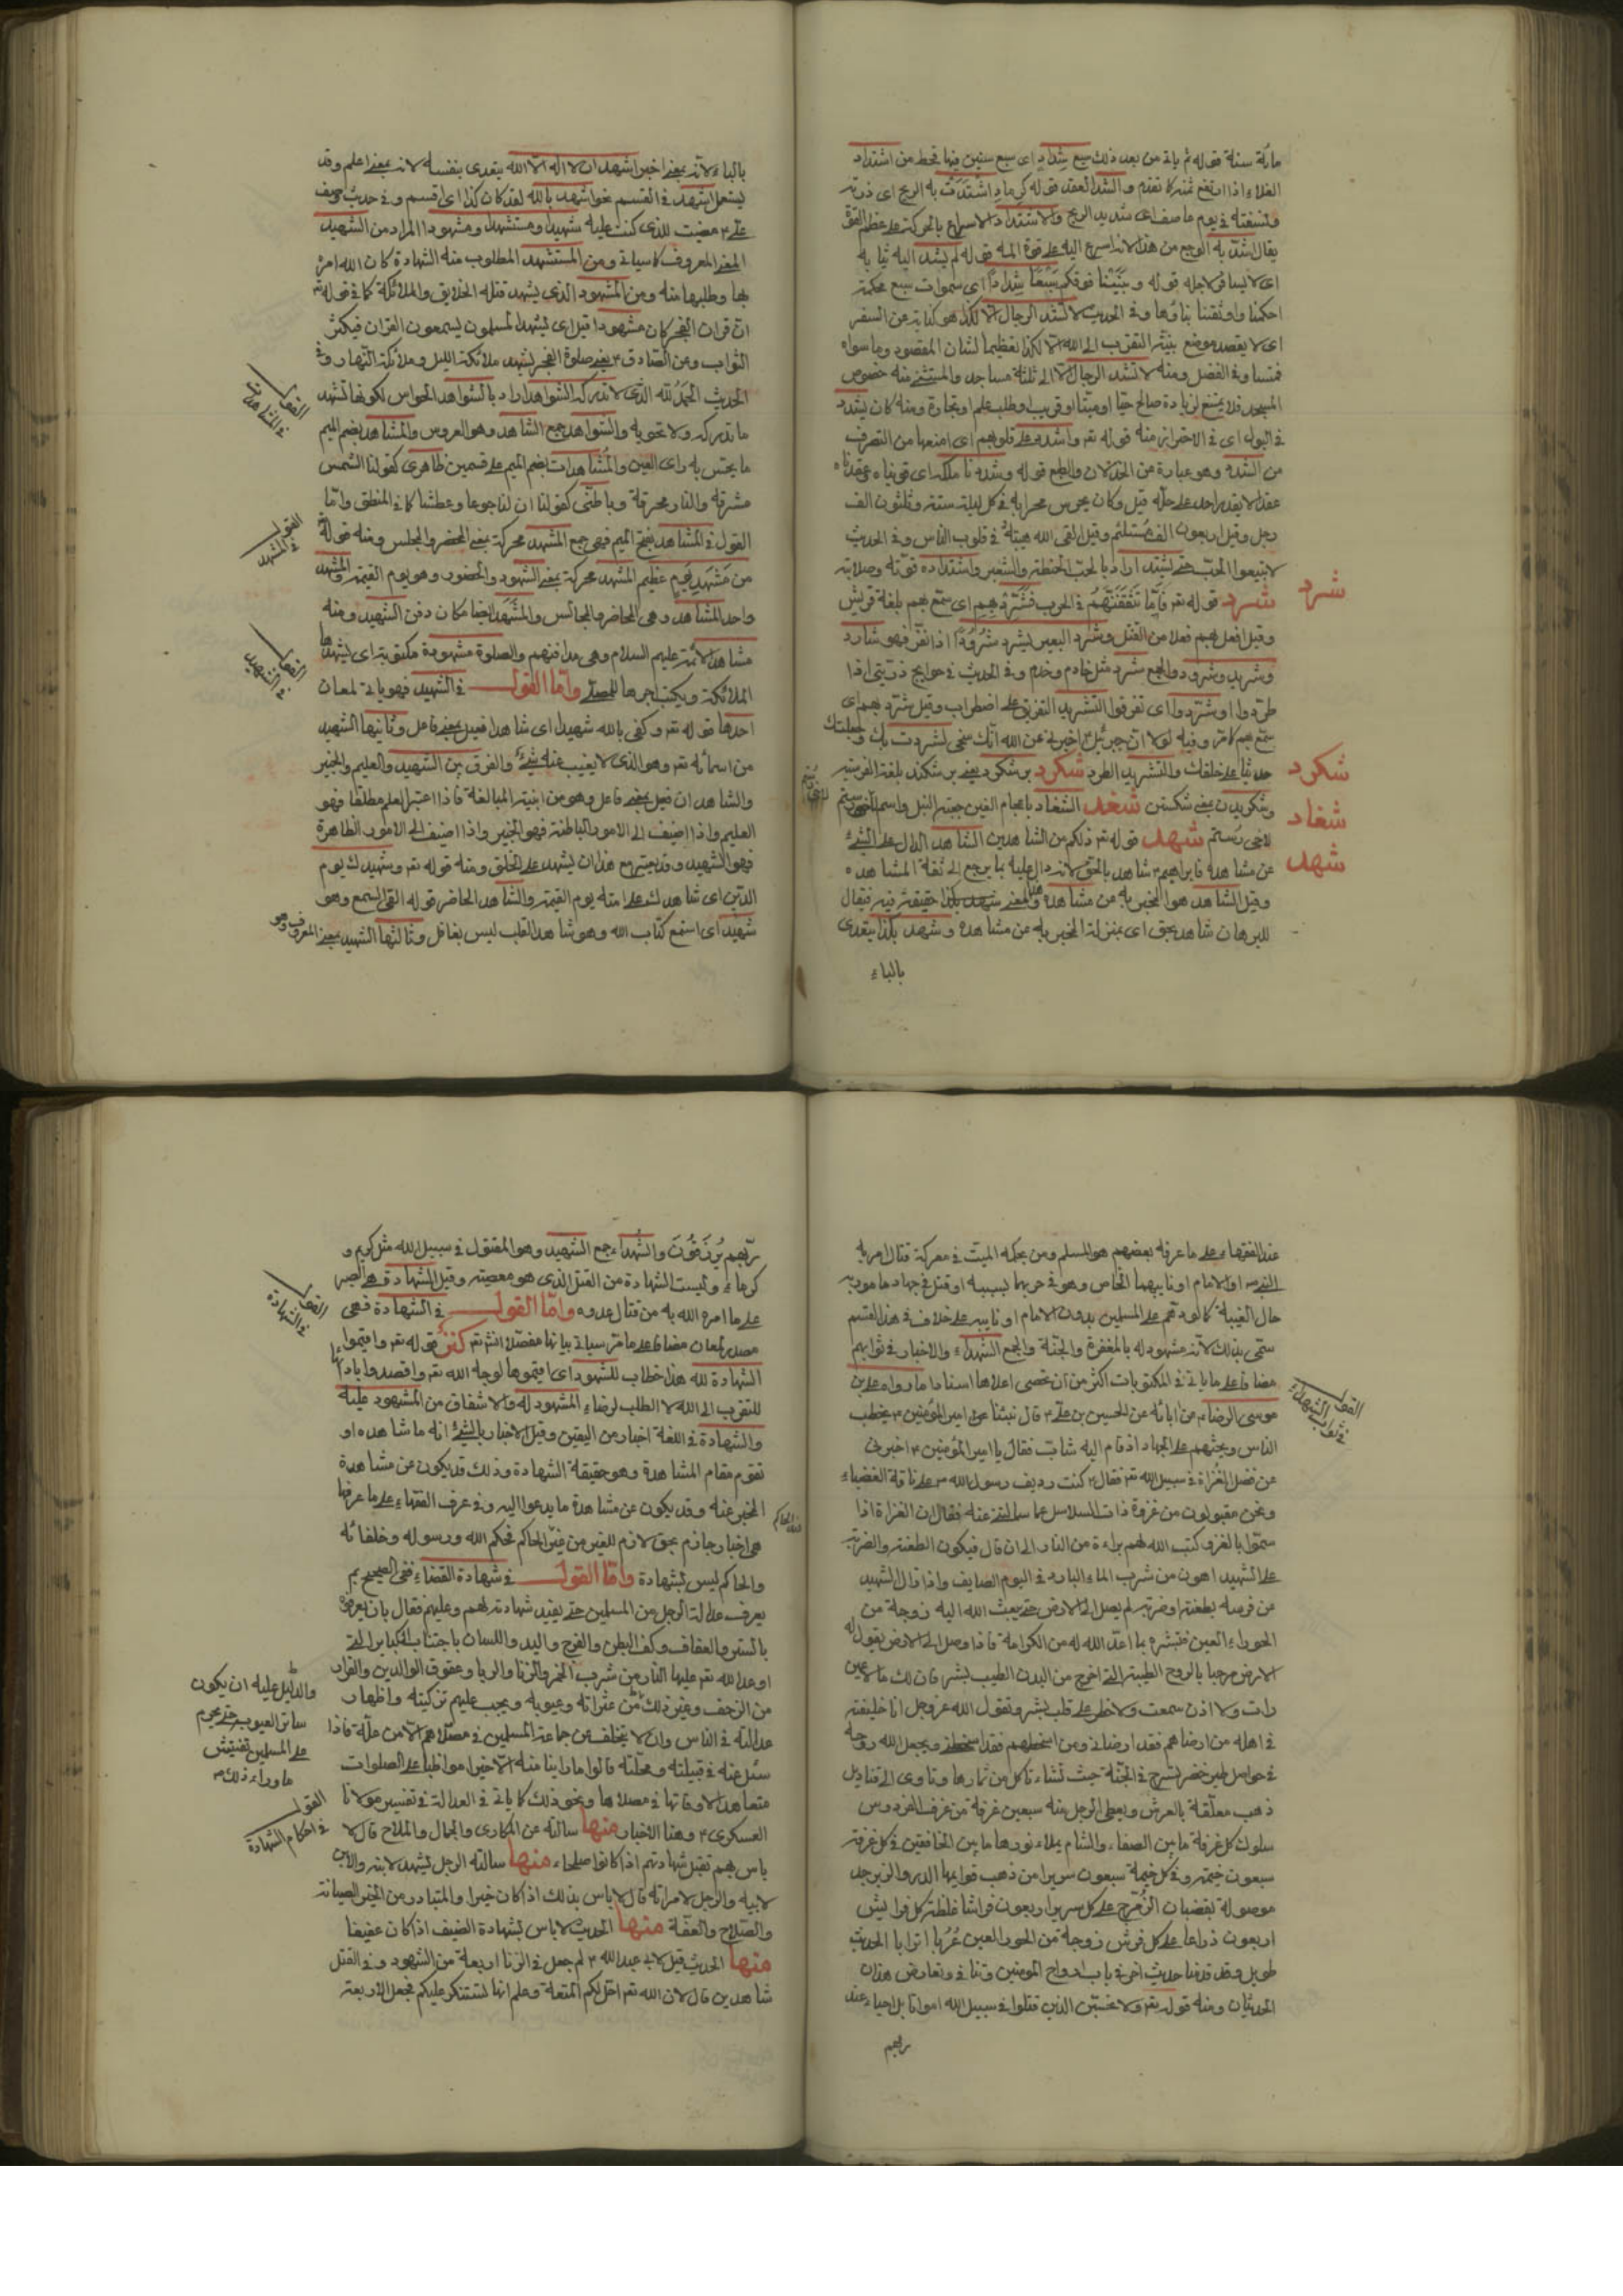 مائة سنة قوله ثم ياتى من بعد ذلك سبع شداد اى سبع سنين فيها قحط من اشتداد
الغلاء اذا ارتفع ثمنه كما تقدم والشد العقد قوله كرماد اشتدت به الريح اى ذرته
فنسفته فى يوم عاصف اى شديد الريح والاشتداد الاسراع بالحركة على عظم القوة
يقال اشتد به الوجع من هذا لانه اسرع اليه على قوة المه قوله لم يشد اليه ثيابه
اى لاجله قوله وبنينا فوقكم سبعا شدادا اى سموات سبع محكمة
احكمنا واوثقنا بناؤها وفى الحديث لا تشد الرحال الا لكذا هو كناية عن السفر
اى لا يقصد موضع بنية التقرب الى الله الا لكذا تعظيما لشان المقصود وما سواه
فمتساو فى الفضل ومنه لا تشد الرحال الا الى ثلثة مساجد والمستثنى منه خصوص
المسجد فلا يمتنع لزيادة صالح حيا او ميتا او قريب او طلب علم او تجارة ومنه كان يشدد
فى البول اى فى الاحتراز منه قوله تع واشدد على قلوبهم اى امنعها من التصرف
من الشدة وهو عبارة عن الخذلان والطبع قوله وشددنا ملكه اى قويناه عقدناه
عقدا لا يقدر احد على حله قيل وكان يحرس محرابه فى كل ليلة ستة وثلثون الف
رجل وقيل اربعون الف مستلئم وقيل القى الله هيبته فى قلوب الناس وفى الحديث
لا تبيعوا الحب حتى يشتد اراد بالحب الحنطة والشعير واشتداده قوته وصلابته
شرد
شرد قوله تع فاما تثقفنهم فى الحرب فشرد بهم اى سمع بهم بلغة قريش
وقيل افعل بهم فعلا من القتل وشرد البعير يشرد شرودا اذا نفر فهو شارد
وشريد وشرود والجمع شرد مثل خادم وخدم وفى الحديث فى حوايج ذريتى اذا
طردوا او شردوا اى تفرقوا التشريد التفريق على اضطراب وقيل شرد بهم اى
سمع بهم كما مر وفيه لولا ان جبرئيل اخبرنى عن الله انك سخى لشردت بك وجعلتك
شكرد
حديثا على خلفك والتشريد الطرد شكرد بن شكرد يعنى بر شكند بلغة الفرسية
شغاد
وشكريدن بمعنى شكستن شغد الشغاد باعجام الغين جعبة النبل واسم
شهد
لاخى رستم شهد قوله تع ذلكم من الشاهدين الشاهد الدال على الشئ
عن مشاهدة فابراهيم شاهد بالحق لانه دال عليه بما يرجع الى ثقة المشاهدة
وقيل الشاهد هو المخبر به عن مشاهدة وشهد بكذا حقيقة فيه فيقال
للبرهان شاهد بحق اى بمنزلة المخبر به عن مشاهدة وشهد بكذا يتعدى
بالباء
بالباء لانه بمعنى اخبر اشهد ان لا اله الا الله يتعدى بنفسه لانه بمعنى اعلم وقد
يستعمل اشهد فى القسم نحو اشهد بالله لقد كان كذا اى اقسم وفى حديث وصف
على مضيت للذى كنت عليه شهيدا ومستشهدا ومشهودا المراد من الشهيد
المعنى المعروف كما سياتى ومن المستشهد المطلوب منه الشهادة كان الله امره
بها وطلبها منه ومن المشهود الذى يشهد قتله الخلايق والملائكة كما فى قوله تع
ان قران الفجر كان مشهودا قيل اى يشهد المسلمون ليسمعون القران فيكثر
الثواب وعن الصادق يعنى صلوة الفجر يشهد ملائكة الليل وملائكة النهار وفى
الحديث الحمد لله الذى لا تدركه الشواهد اراد بالشواهد الحواس لكونها تشهد
القول فى المشاهدات
ما تدركه ولا تحويه والشواهد جمع الشاهد وهو العروس والمشاهد بضم الميم
ما يحتس به راى العين والمشاهدات بضم الميم على قسمين ظاهرى كقولنا الشمس
مشرقة والنار محرقة وباطنى كقولنا ان لنا جوعا وعطشا كما فى المنطق واما
القول فى المشهد
القول فى المشاهد بفتح الميم فهى جمع المشهد محركة بمعنى المحضر والمجلس ومنه قوله
من مشهد يوم عظيم المشهد محركة بمعنى الشهود والحضور وهو يوم القيمة والمشهد
واحد المشاهد وهى المحاضر والمجالس والمشهد ايضا مكان دفن الشهيد ومنه
القول فى الشهيد
مشاهد الائمة عليهم السلام وهى مدافنهم والصلوة مشهودة مكتوبة اى يشهدها
الملائكة ويكتب اجرها للمصلى واما القول فى الشهيد فهو ياتى لمعان
احدها قوله تع وكفى بالله شهيدا اى شاهدا فعيل بمعنى فاعل وثانيها الشهيد
من اسمائه تع وهو الذى لا يغيب عنه شئ والفرق بين الشهيد والعليم والخبير
والشاهد ان فعيل بمعنى فاعل وهو من ابنية المبالغة فاذا اعتبر العلم مطلقا فهو
العليم واذا اضيف الى الامور الباطنة فهو الخبير واذا اضيف الى الامور الظاهرة
فهو الشهيد وقد يعتبر مع هذا ان يشهد على الخلق ومنه قوله تع وشهيدك يوم
الدين اى شاهدك على امته يوم القيمة والشاهد الحاضر قوله القى السمع وهو
شهيد اى استمع كتاب الله وهو شاهد القلب ليس بغافل وثالثها الشهيد بمعنى المعروف وهو
عند الفقهاء على ما عرفه بعضهم هو المسلم ومن بحكمه الميت فى معركة قتال امر به
النبى او الامام او نايبهما الخاص وهو فى حزبهما بسببه او قتل فى جهاد مامور به
حال الغيبة كما لو دهم على المسلمين بدون الامام او نايبه على خلاف فى هذا القسم
سمى بذلك لانه مشهود له بالمغفرة والجنة والجمع الشهداء والاخبار فى ثوابهم
القول فى ثواب الشهداء
مضافا على ما ياتى فى المكتوبات اكثر من ان تحصى اعلاها اسنادا ما رواه على بن
موسى الرضا عن ابائه عن الحسين بن على قال بينما امير المؤمنين يخطب
الناس ويحثهم على الجهاد اذ قام اليه شاب فقال يا امير المؤمنين اخبرنى
عن فضل الغزاة فى سبيل الله تع فقال كنت رديف رسول الله على ناقة الغضباء
ونحن مقبولون من غزوة ذات السلاسل عما سالتنى عنه فقال ان الغزاة اذا
هموا بالغزو كتب الله لهم براءة من النار الى ان قال فيكون الطعنة والضربة
على الشهيد اهون من شرب الماء البارد فى اليوم الصايف واذا زال الشهيد
من فرسه بطعنة او ضربة لم يصل الى الارض حتى يبعث الله اليه زوجة من
الحور العين فتبشره بما اعد الله له من الكرامة فاذا وصل الى الارض يقول له
الارض مرحبا بالروح الطيبة التى اخرج من البدن الطيب ابشر فان لك ما لا عين
رات ولا اذن سمعت ولا خطر على قلب بشر ويقول الله عز وجل انا خليفته
فى اهله من ارضاهم فقد ارضانى ومن اسخطهم فقد اسخطنى ويجعل الله روحه
فى حواصل طير خضر تسرح فى الجنة حيث تشاء تاكل من ثمارها وتاوى الى قناديل
ذهب معلقة بالعرش ويعطى الرجل منه سبعين غرفة من غرف الفردوس
سلوك كل غرفة ما بين الصفاء والشام يملاء نورها ما بين الخافقين فى كل غرفة
سبعون خيمة وفى كل خيمة سبعون سريرا من ذهب قوايمها الدر والزبرجد
موصولة بقضبان الزمرد على كل سرير اربعون فراشا غلظة كل فراش
اربعون ذراعا على كل فرش زوجة من الحور العين عربا اترابا الحديث
طويل وقد قدمنا حديث اخر فى باب ارواح المومنين وتنافى وتعارض هذان
الحديثان ومنه قوله تع ولا تحسبن الذين قتلوا فى سبيل الله امواتا بل احياء عند
ربهم
ربهم يرزقون والشهداء جمع الشهيد وهو المقتول فى سبيل الله مثل كريم و
كرماء وليست الشهادة من القتل الذى هو معصية وقيل الشهادة هى الصبر
القول فى الشهادة
على ما امره الله به من قتال عدوه واما القول فى الشهادة فهى
مصدر لمعان مضافا على ما مر سياتى بيانها مفصلا انشاء تع كقوله تع واقيموا
الشهادة لله هذا خطاب للشهود اى اقيموها لوجه الله تع واقصدوا بادائها
للتقرب الى الله لا الطلب لرضاء المشهود له والاشفاق من المشهود عليه
والشهادة فى اللغة اخبار من اليقين وقيل الاخبار بالشئ انه ما شاهده او
تقوم مقام المشاهدة وهو حقيقة الشهادة وذلك قد يكون عن مشاهدة
المخبر عنه وقد يكون عن مشاهدة ما يدعو اليه وفى عرف الفقهاء على ما عرفها
هى اخبار جازم بحق لازم للغير من غير الحاكم فحكم الله ورسوله وخلفائه
والحاكم ليس بشهادة واما القول فى شهادة القضاء ففى الصحيح بم
يعرف عدالة الرجل من المسلمين حتى يفيد شهادته لهم وعليهم فقال بان يعرفوه
بالستر والعفاف وكف البطن والفرج واليد واللسان باجتناب الكبائر التى
اوعد الله تع عليها النار من شرب الخمر والزنا والربا وعقوق الوالدين والفرار
من الزحف وغير ذلك من عثراته وعيوبه ويجب عليهم تزكيته واظهار
والدليل عليه ان يكون
ساتر العيوب حتى يحرم
على المسلمين تفتيش
ما وراء ذلك
عدالته فى الناس وان لا يتخلف عن جماعة المسلمين فى مصلاهم الا من علة فاذا
سئل عنه فى قبيلته ومحلته قالوا ما راينا منه الا خيرا مواظبا على الصلوات
متعاهدا لاوقاتها فى مصلاها ونحو ذلك كما ياتى فى العدالة فى تفسير مولانا
القول فى احكام الشهادة
العسكرى وهنا الاخبار منها سالته عن المكارى والجمال والملاح قال لا
باس بهم تقبل شهادتهم اذا كانوا صلحاء منها سالته الرجل يشهد لابنه والابن
لابيه والرجل لامراته قال لا باس بذلك اذا كان خيرا والمتبادر من الخير الصيانة
والصلاح والعفة منها الحديث لا باس بشهادة الضيف اذا كان عفيفا
منها الحديث قيل لابى عبد الله لم جعل فى الزنا اربعة من الشهود وفى القتل
شاهدين قال لان الله تع احل لكم المتعة وعلم انها ستنكر عليكم فجعل الاربعة